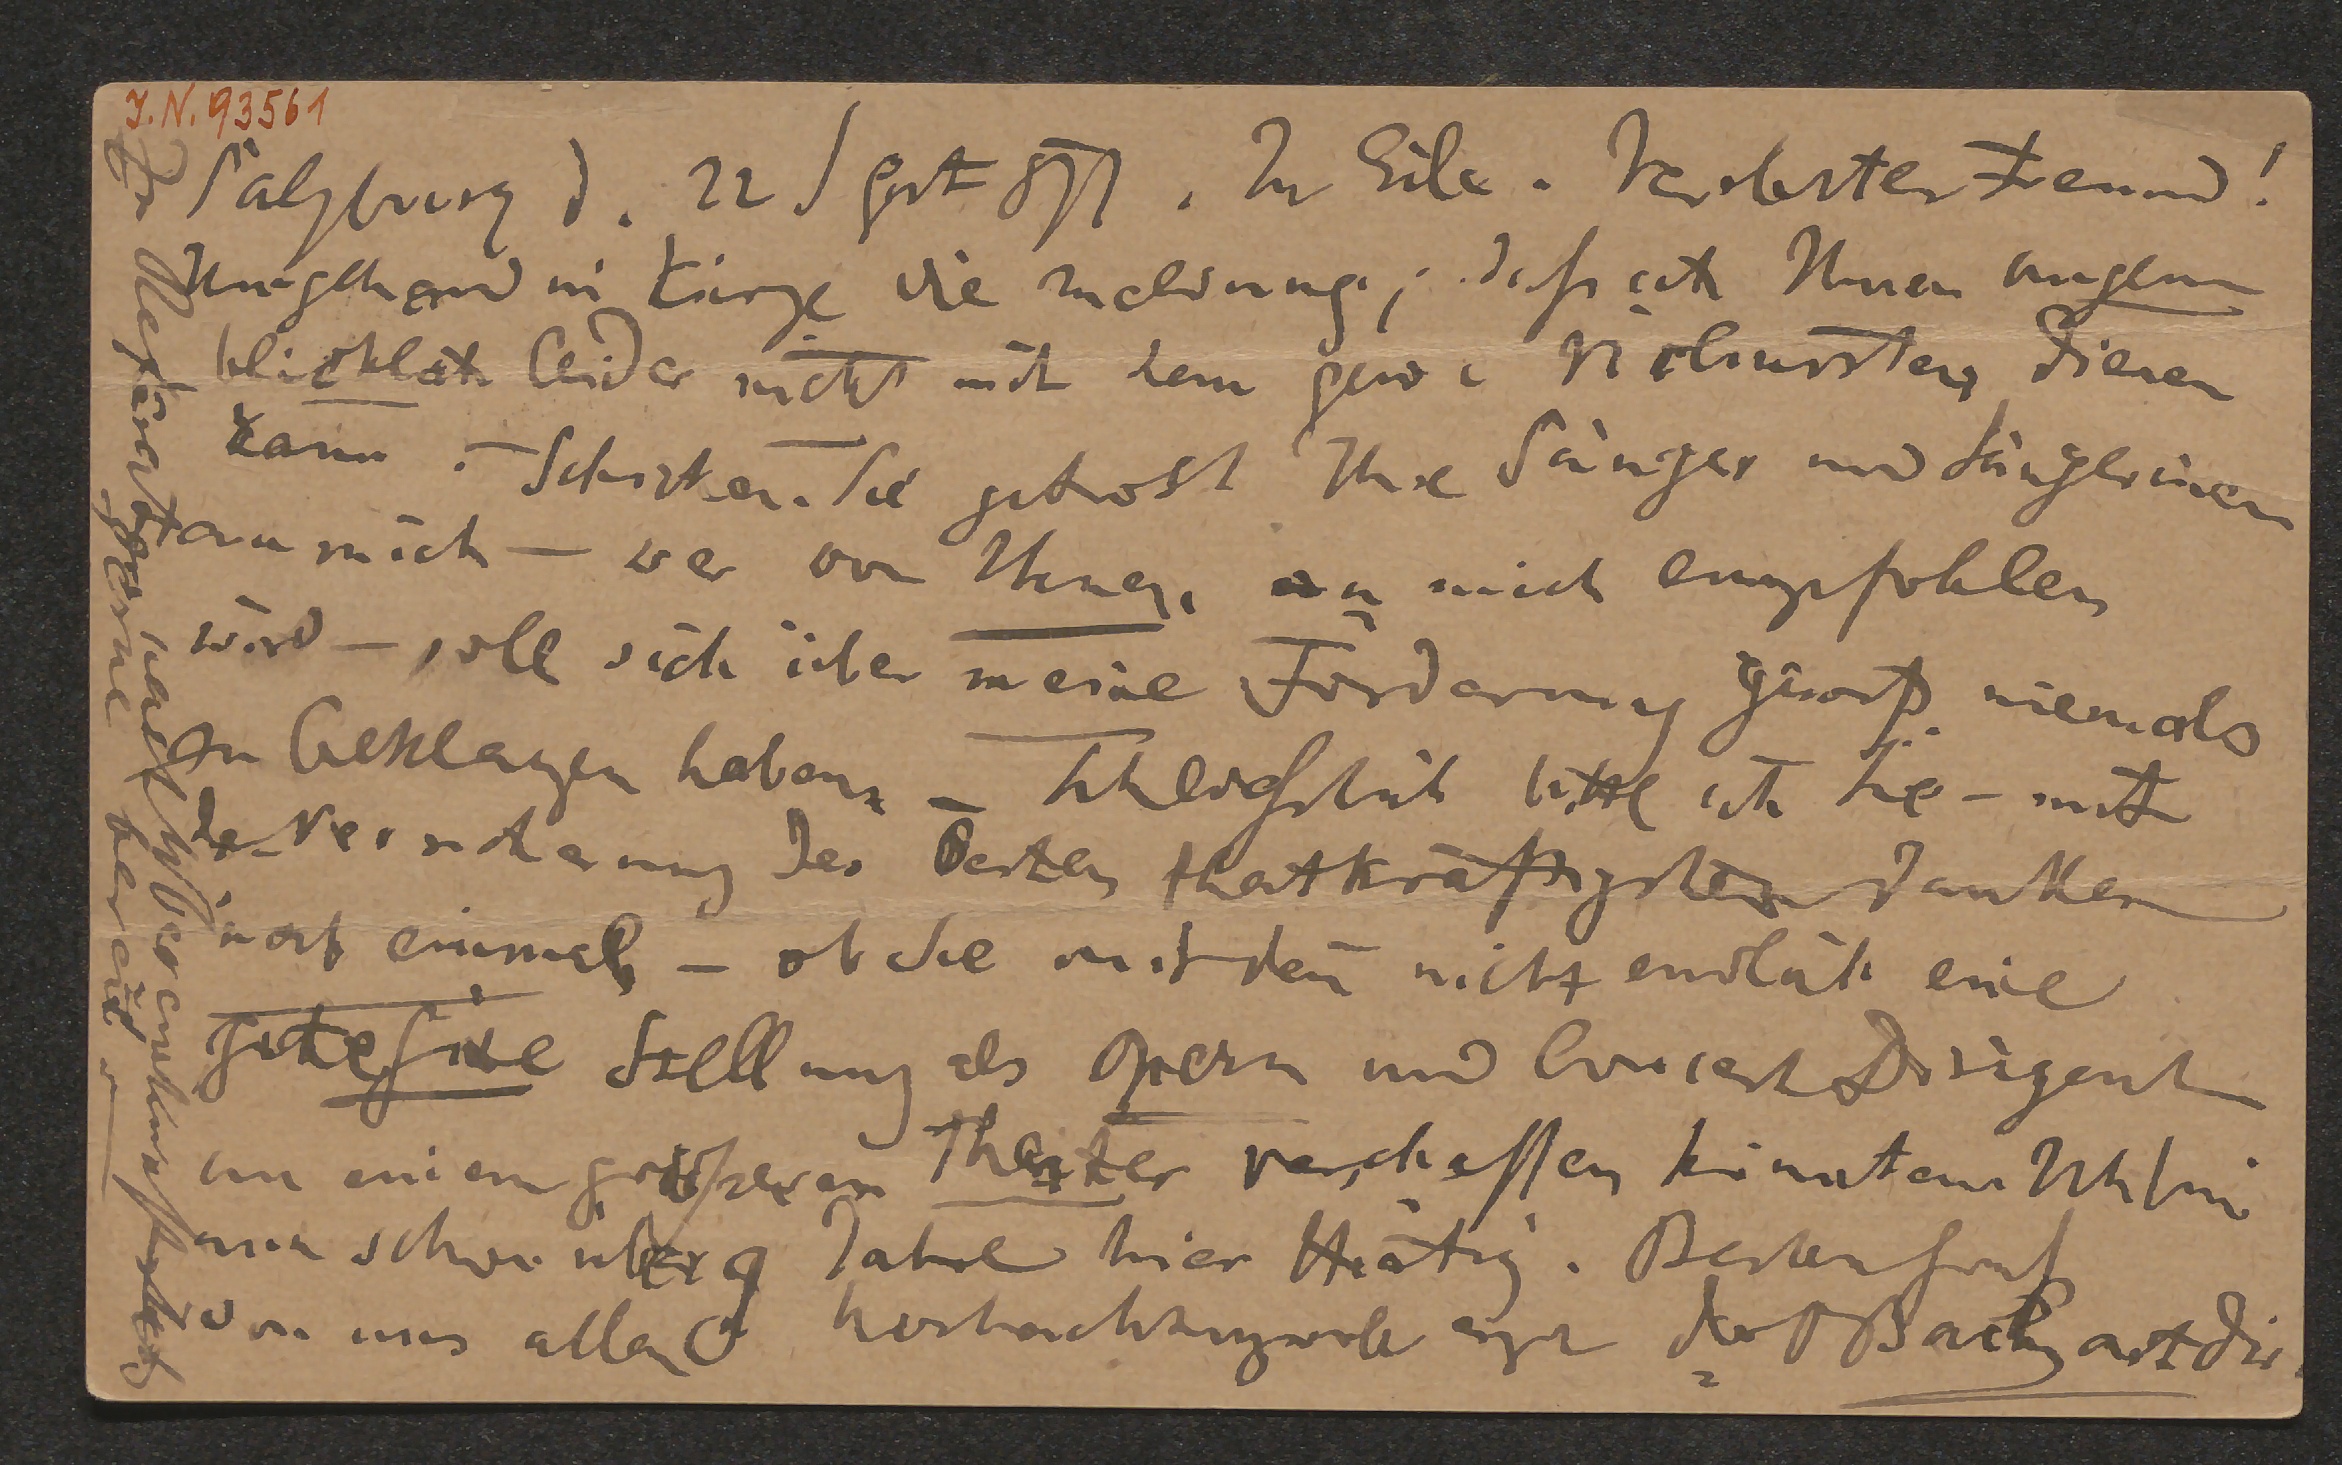 I.N. 93561
Salzburg d. 22 Sept 877. In Eile. Verehrtester Freund!
Umgehend in Kürze die Meldung, daß ich Ihnen augen
blicklich leider nicht mit dem gew. dienen
kann. – Schicken Sie getrost Ihre Sänger und Sängerinen
an mich – wer von Ihnen an mich empfohlen
wird – soll sich über meine Förderung gewiß niemals
zu beklagen haben. – Schließlich bitte ich Sie – mit
der Versicherung des besten thatkräftigsten Dankes
noch einmal – ob Sie mir denn nicht endlich eine
gute fixe Stellung als Opern und Concert Dirigent
an einem größeren Theater verschaffen könnten. Ich bin
nun schon über 9 Jahre hier thätig. Besten Gruß
von uns allen hochachtungsvoll erg. Dr O Bach art Dir.
Zu Gegen
gerne bereit